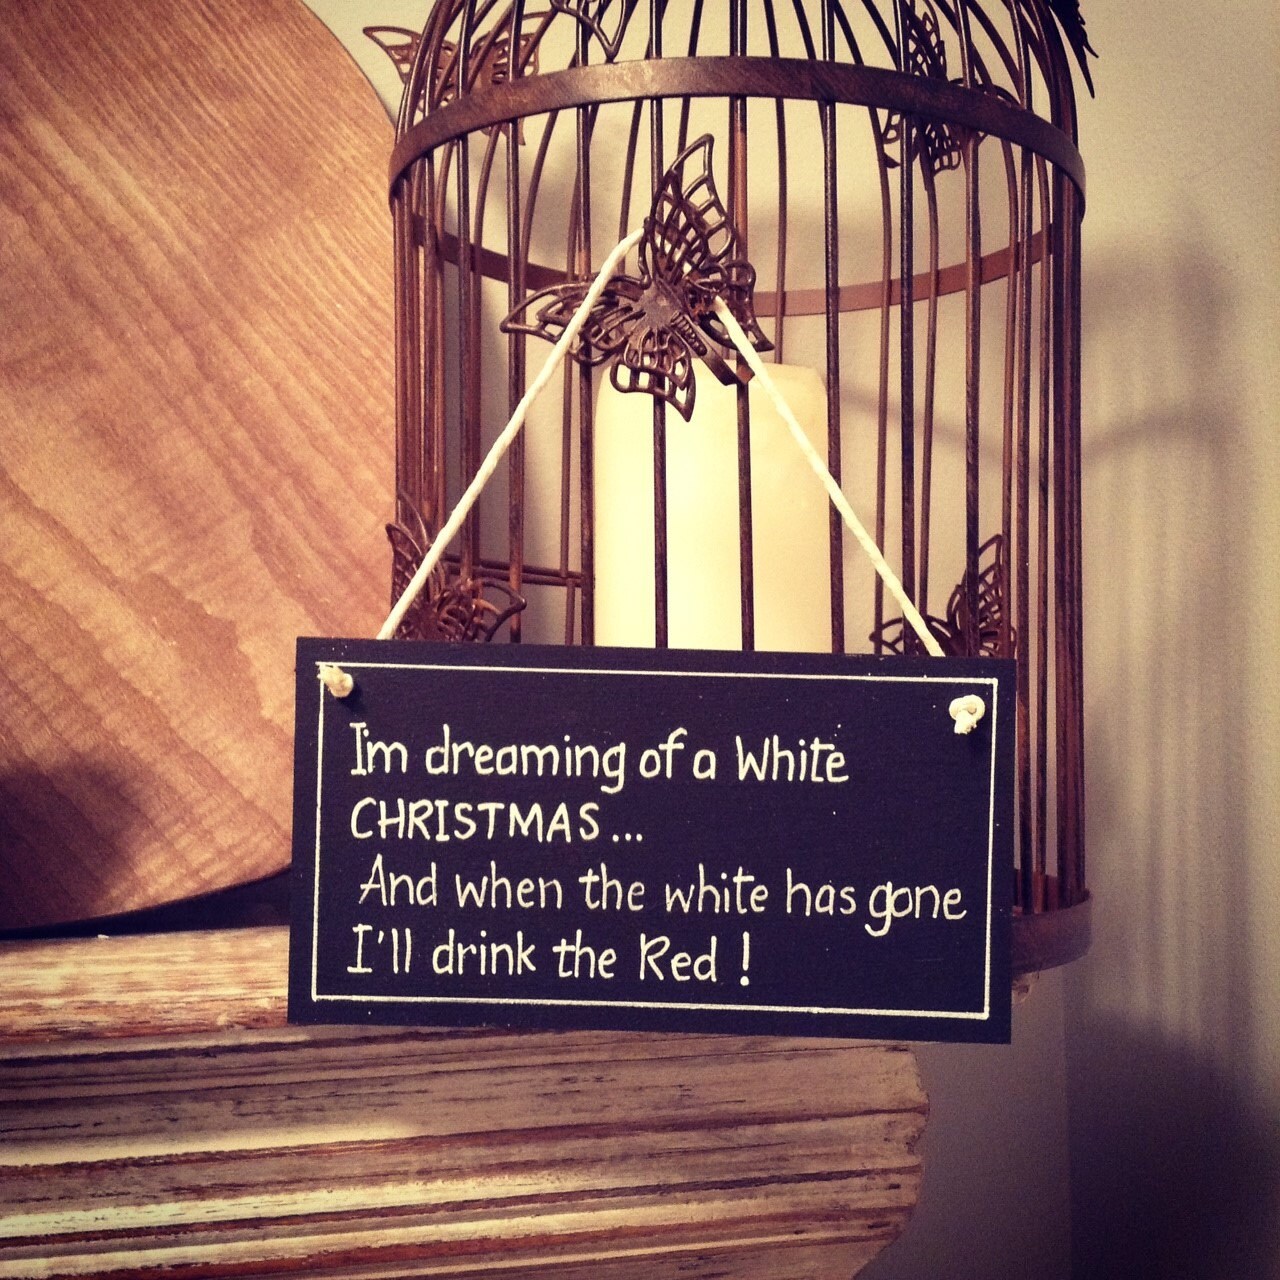 I'm dreaming of a White
CHRISTMAS...
And when the white has gone
I'll drink the Red!